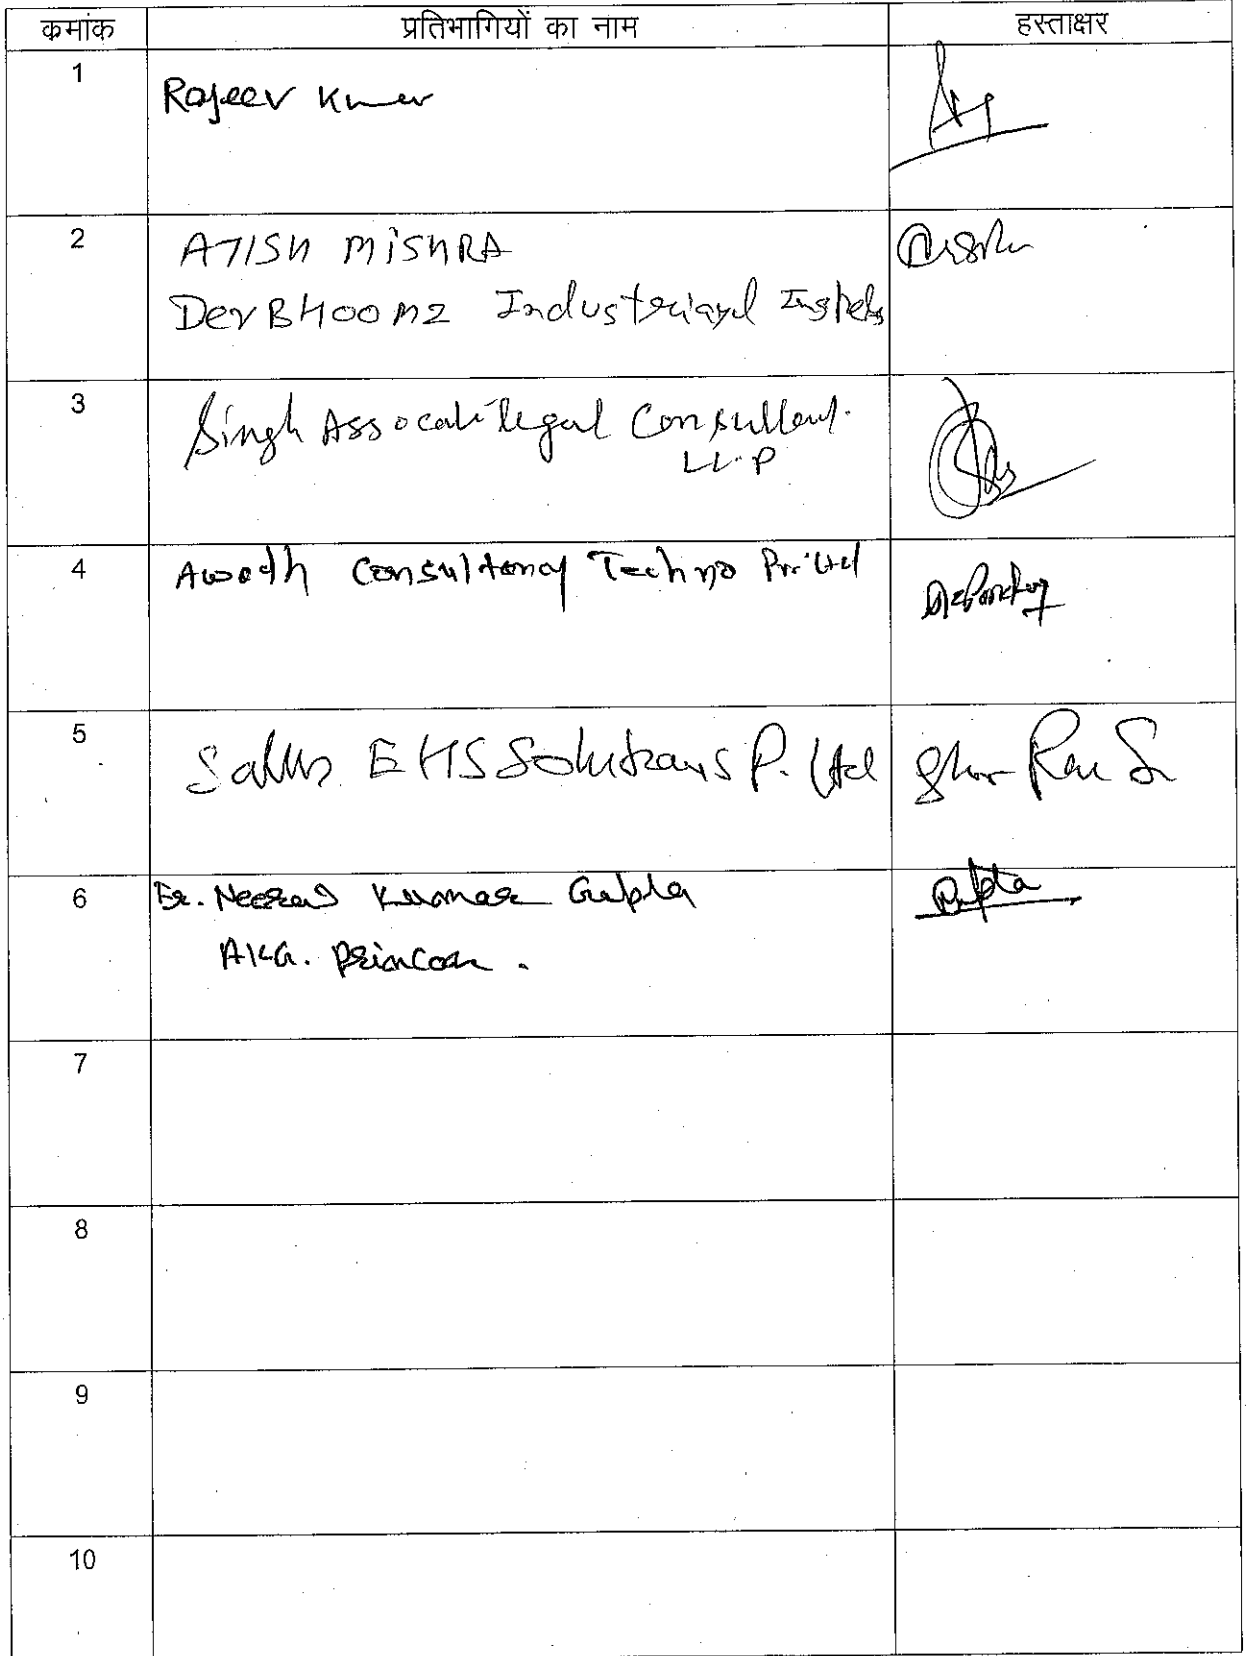 कमांक प्रतिभागियों का नाम हस्ताक्षर
1 Rajeev Kumar
2 ATISH MISHRA
DevBHOOMI Industrial
3 Singh Legal Consultant
LLP
4 Awadh Consultancy Techno Pvt Ltd
5 EHS Solutions P. Ltd
6 Er. Neeraj Kumar Gupta Gupta
7
8
9
10